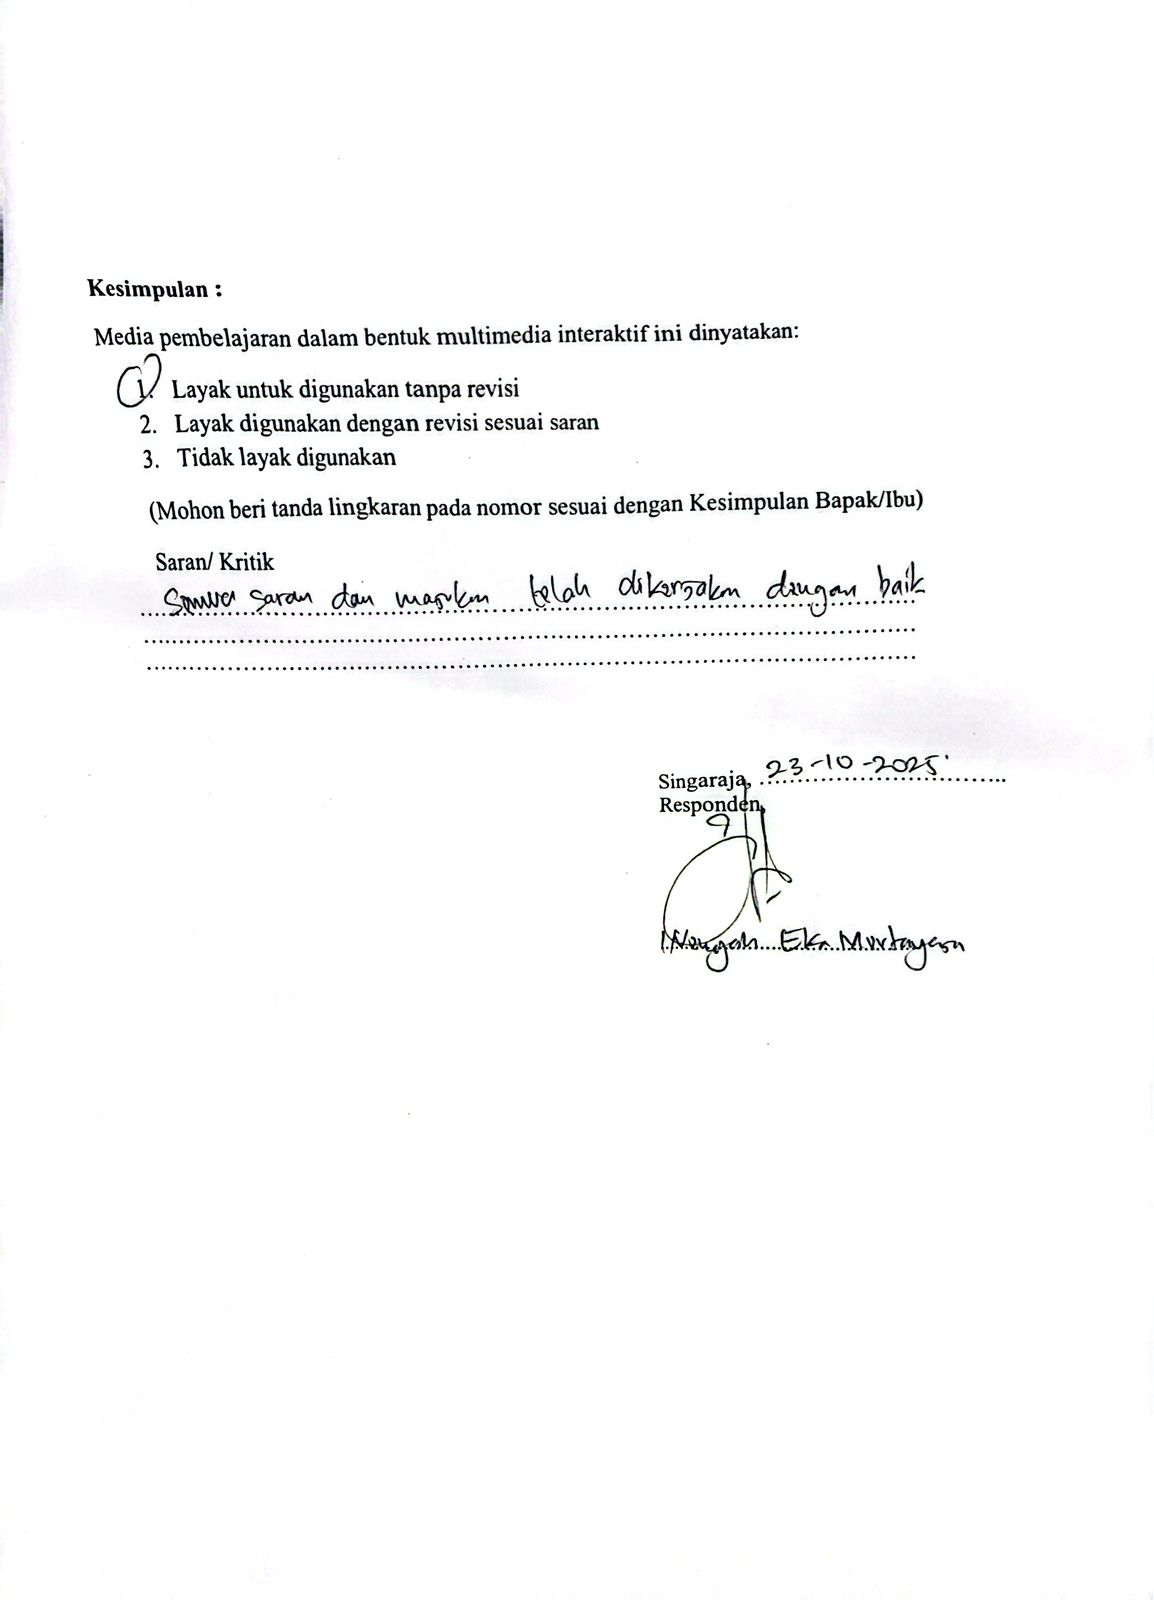 Kesimpulan :
Media pembelajaran dalam bentuk multimedia interaktif ini dinyatakan:
1. Layak untuk digunakan tanpa revisi
2. Layak digunakan dengan revisi sesuai saran
3. Tidak layak digunakan
(Mohon beri tanda lingkaran pada nomor sesuai dengan Kesimpulan Bapak/Ibu)
Saran/ Kritik
Semua saran dan masukan telah dikerjakan dengan baik
Singaraja, 23-10-2025
Responden,
I Nengah Eka Mertayasa